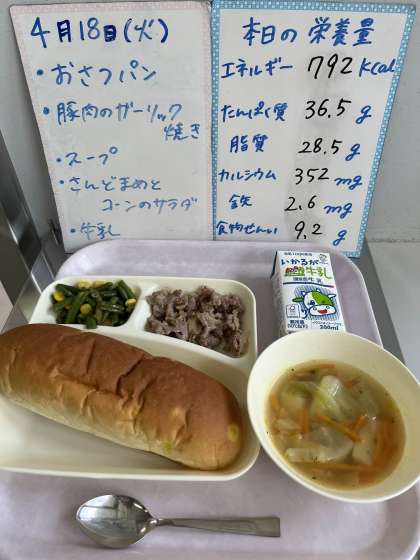 4月18日(火)
・おさつパン
・豚肉のガーリック
焼き
・スープ
・さんどまめと
コーンのサラダ
・牛乳
本日の栄養量
エネルギー 792 Kcal
たんぱく質 36.5 g
脂質 28.5 g
カルシウム 352 mg
鉄 2.6 mg
食物せんい 9.2 g
いかるが
牛乳
200ml